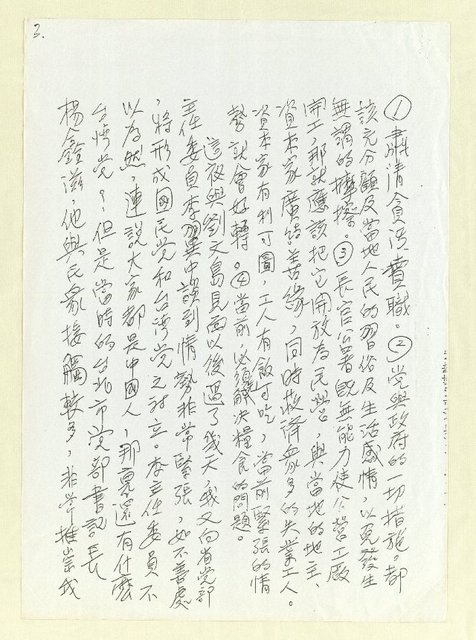 3.
①肅清貪污瀆職。②党與政府的一切措施。都
該充分顧及當地人民的習俗及生活感情,以免發生
無謂的摩擦。③長官公署既無能力使公營工廠
開工,那就應該把它開放為民營,與當地的地主、
資本家廣結善緣,同時救濟眾多的失業工人。
資本家有利可圖,工人有飯可吃,當前緊張的情
勢就會好轉。④當前必須解決糧食的問題。
這夜與劉文島見面以後過了幾天,我又向省党部
主任委員李翼中談到情勢非常緊張,如不善處
,將形成國民党和台湾党之対立。李主任委員不
以為然,連說大家都是中國人,那裏還有什麼
台湾党?但是當時的台北市党部書記長
楊鑫滋,他與民眾接觸較多,非常推崇我